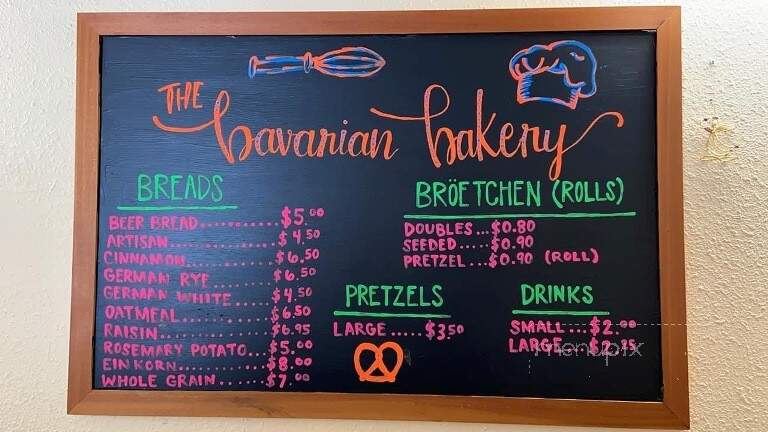 THE
bavarian bakery
BREADS
BEER BREAD.............$5.00
ARTISAN................$4.50
CINNAMON...............$6.50
GERMAN RYE.............$6.50
GERMAN WHITE...........$4.50
OATMEAL................$6.50
RAISIN.................$6.95
ROSEMARY POTATO...$5.00
EINKORN................$8.00
WHOLE GRAIN......$7.00
BRÖETCHEN (ROLLS)
DOUBLES...$0.80
SEEDED.....$0.90
PRETZEL...$0.90 (ROLL)
PRETZELS
LARGE.....$3.50
DRINKS
SMALL...$2.00
LARGE...$2.25
menupix